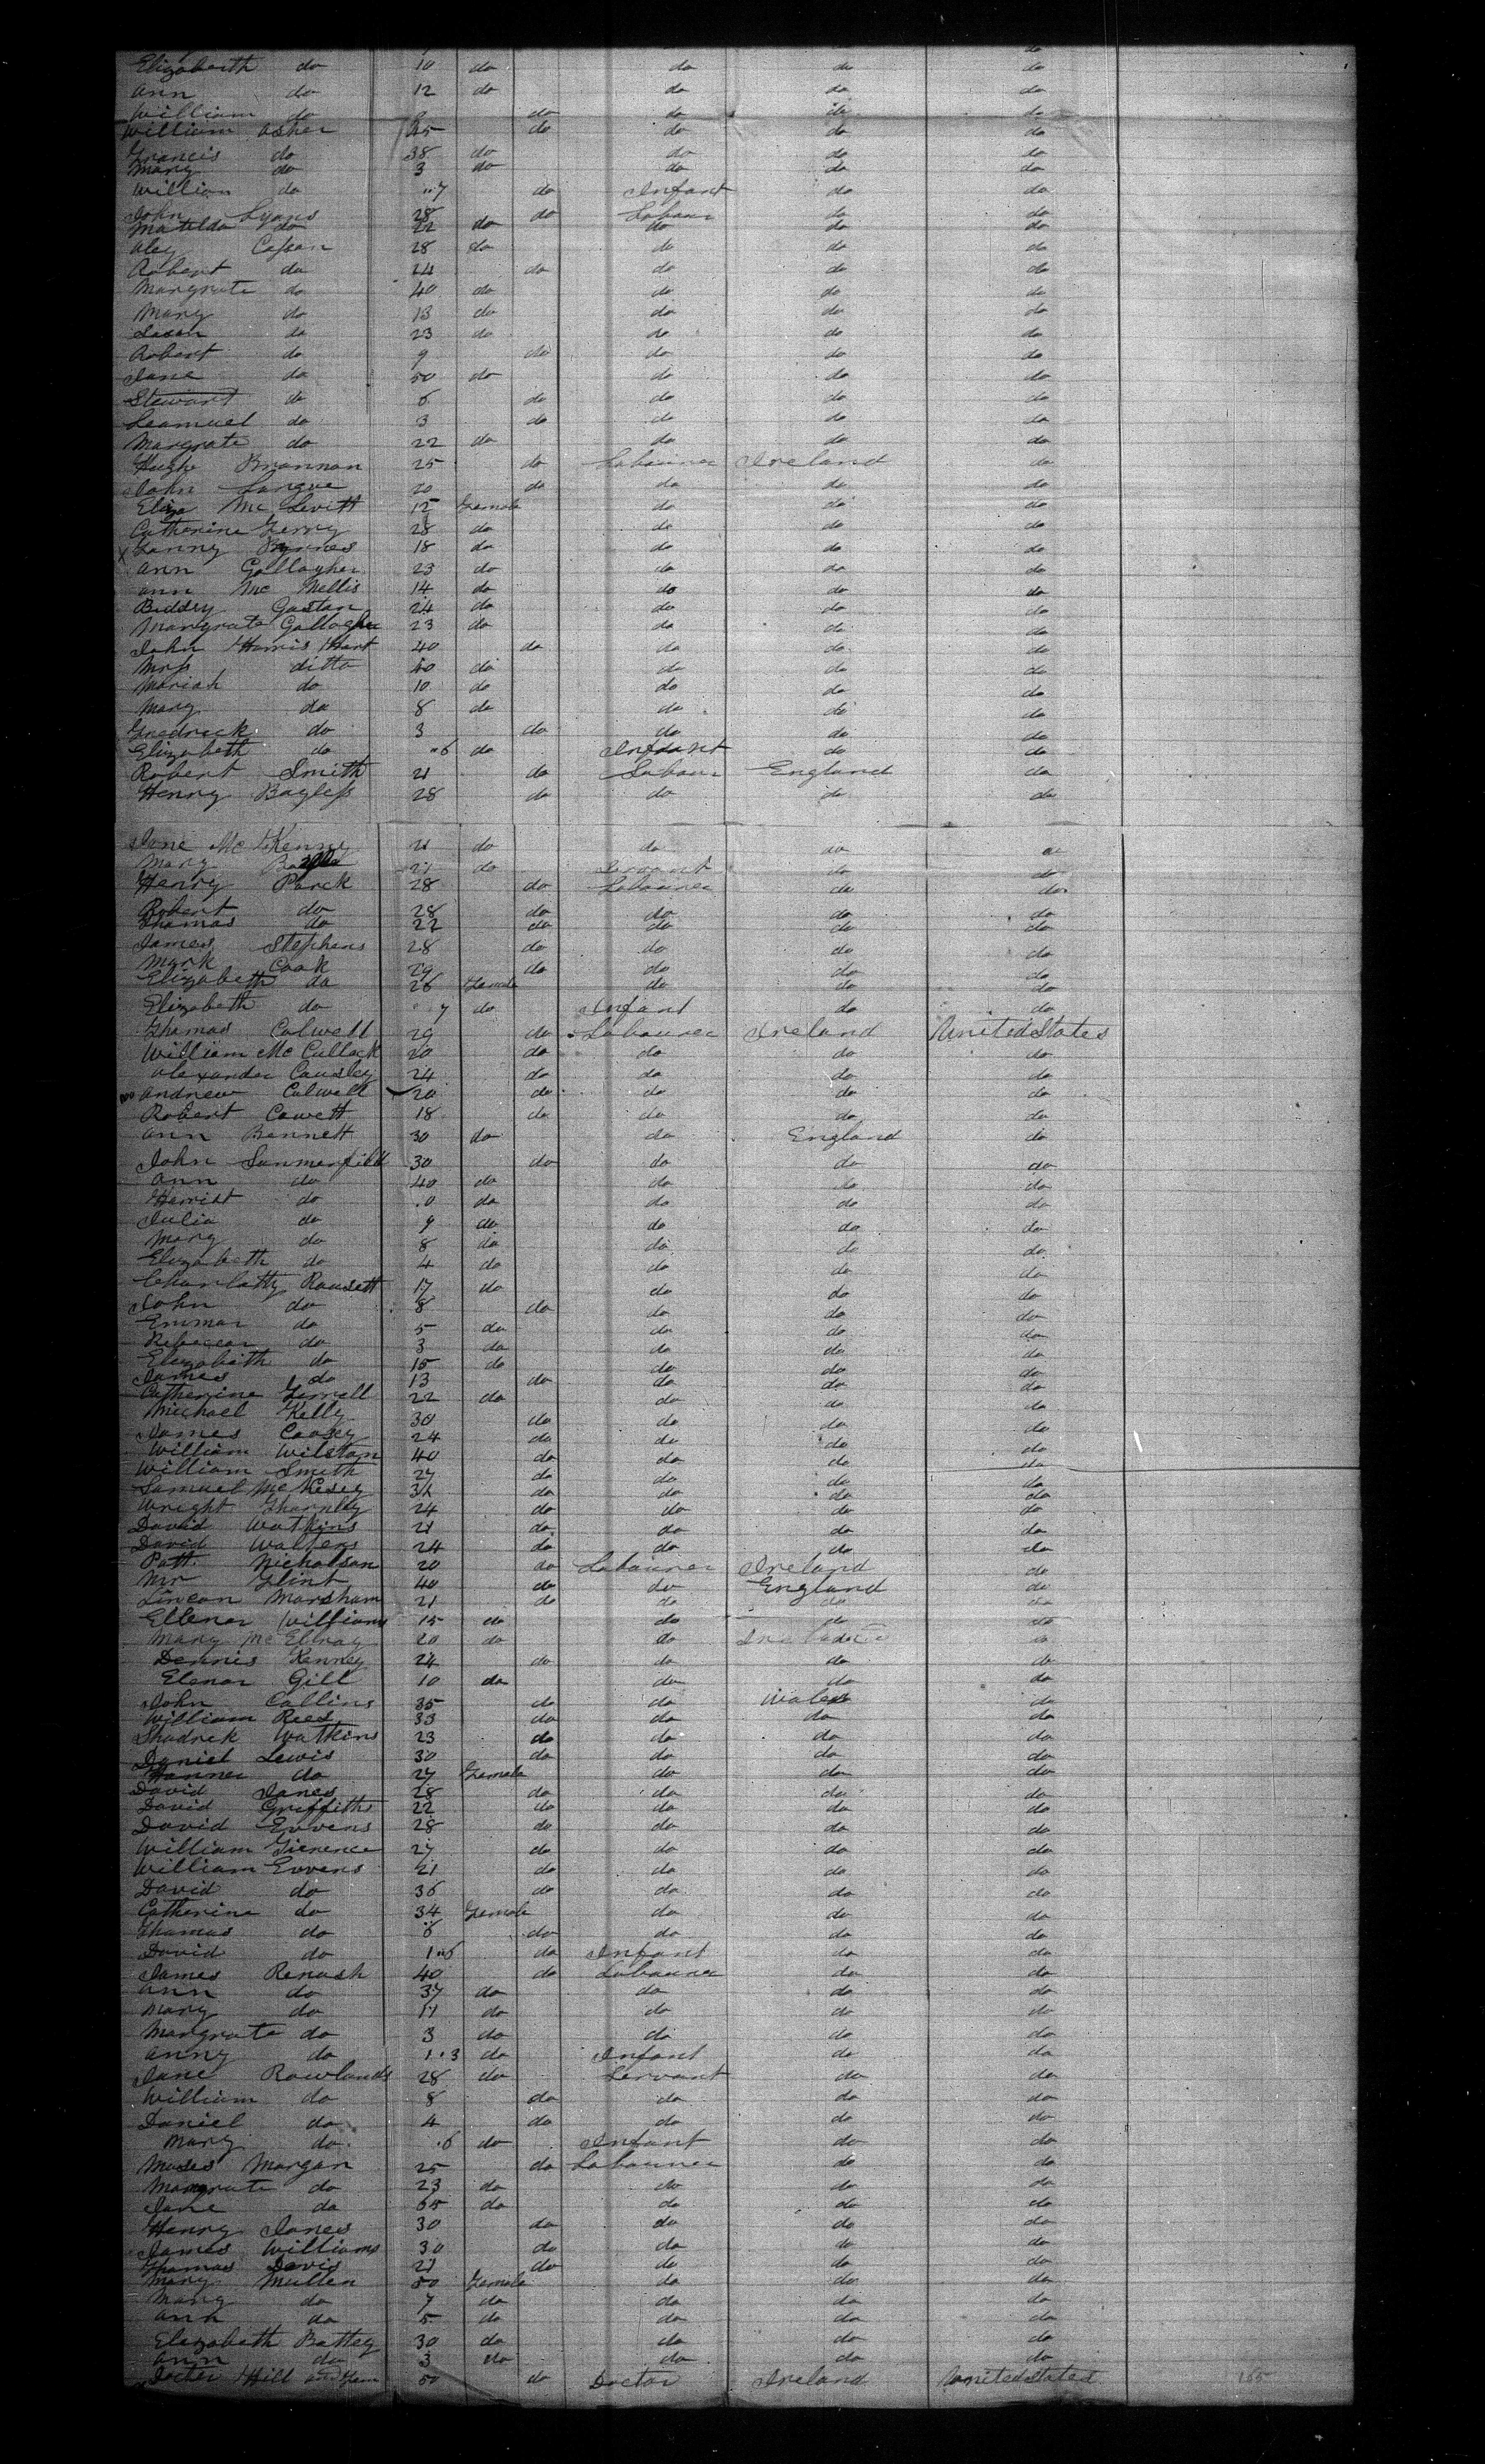 do
Elizabeth do 10 do do do do
Ann do 12 do do do do
William do do do do do
William Asher 45 do do do do
Francis do 38 do do do do
Mary do 3 do do do do
William do "7 do Infant do do
John Lyons 28 do Labour do do
Matilda do 22 do do do do
Aley Caftan 28 do do do do
Robert do 24 do do do do
Margrate do 40 do do do do
Mary do 13 do do do do
Susan do 23 do do do do
Robert do 9 do do do do
Jane do 50 do do do do
Stewart do 6 do do do do
Leamuel do 3 do do do do
Margrate do 22 do do do do
Hugh Brannan 25 do Labourer Ireland do
John Largue 20 do do do do
Eliza Mc Levitt 15 Female do do do
Catherine Ferry 28 do do do do
X Fanny Byrnes 18 do do do do
Ann Gallagher 23 do do do do
Ann Mc Nellis 14 do do do do
Biddey Gastan 24 do do do do
Margrate Gallagher 23 do do do do
John Harris Hart 40 do do do do
Mrs ditto 40 do do do do
Mariah do 10 do do do do
Mary do 8 do do do do
Fredrick do 3 do do do do
Elizabeth do "6 do Infant do do
Robert Smith 21 do Labour England do
Henry Bayless 28 do do do do
Jane Mc Kenny 21 do do do do
Mary 21 do Servant do do
Henry Parck 28 do Labourer do do
Robert do 28 do do do do
Thomas do 22 do do do do
James Stephens 28 do do do do
Mark Cook 29 do do do do
Elizabeth do 26 Female do do do
Elizabeth do "7 do Infant do do
Thomas Colwell 29 do Labourer Ireland United States
William Mc Cullack 20 do do do do
Alexander Causley 24 do do do do
Andrew Colwell 20 do do do do
Robert Cowett 18 do do do do
Ann Bennett 30 do do England do
John Summerfield 30 do do do do
Ann do 40 do do do do
Herriat do .0 do do do do
Julia do 9 do do do do
Mary do 8 do do do do
Elizabeth do 4 do do do do
Charlatty Rousett 17 do do do do
John do 8 do do do do
Emmar do 5 do do do do
Rebeccar do 3 do do do do
Elizabeth do 15 do do do do
James do 13 do do do do
Catherine Ferrell 22 do do do do
Michael Kelly 30 do do do do
James Coosey 24 do do do do
William Wilston 40 do do do do
William Smith 27 do do do do
Samuel Mc Kesey 34 do do do do
Wright Tharnpley 24 do do do do
David Watkins 21 do do do do
David Walters 24 do do do do
Patt. Nicholson 20 do Labourer Ireland do
Mr Flint 40 do do England do
Lincon Marsham 21 do do do do
Ellenor Williams 15 do do do do
Mary Mc Ellroy 20 do do do
Dennis Kenney 24 do do do do
Elenor Gill 10 do do do do
John Collins 35 do do Wales do
William Rees 33 do do do do
Shadrck Watkins 23 do do do do
Daniel Lewis 30 do do do do
Hanner do 27 Female do do do
David Jones 28 do do do do
David Griffiths 22 do do do do
David Evvens 28 do do do do
William Tierence 27 do do do do
William Evvens 21 do do do do
David do 36 do do do do
Catherine do 34 Female do do do
Thomas do 6 do do do do
David do 1"6 do Infant do do
James Renash 40 do Labourer do do
Ann do 37 do do do do
Mary do 11 do do do do
Margrate do 3 do do do do
Anny do 1"3 do Infant do do
Jane Rowlands 28 do Servant do do
William do 8 do do do do
Daniel do 4 do do do do
Mary do .6 do Infant do do
Moses Morgan 25 do Labourer do do
Margrate do 23 do do do do
Jane do 65 do do do do
Henry Jones 30 do do do do
James Williams 30 do do do do
Thomas Davis 21 do do do do
Mary Mullen 50 Female do do do
Mary do 7 do do do do
Ann do 5 do do do do
Elezabeth Battey 30 do do do do
Ann do 3 do do do do
Docter Hill 50 do Doctor Ireland United States 155